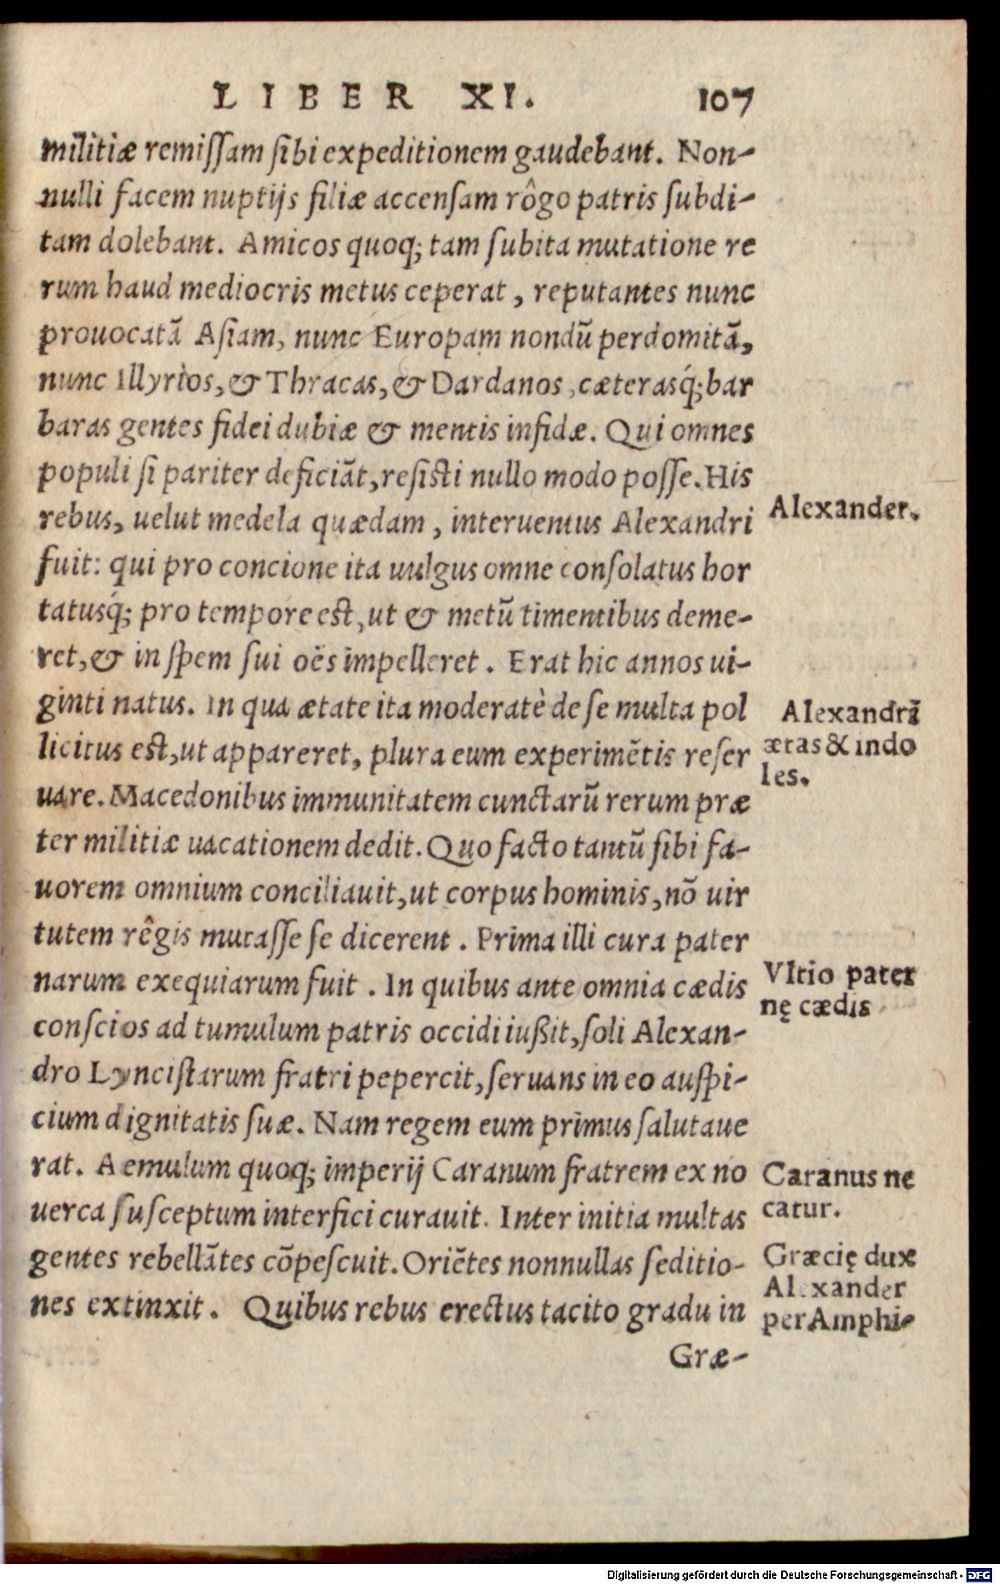 LIBER XI. 107
militiæ remiſſam ſibi expeditionem gaudebant. Non-
nulli facem nuptijs filiæ accenſam rôgo patris ſubdi-
tam dolebant. Amicos quoq; tam ſubita mutatione re
rum haud mediocris metus ceperat, reputantes nunc
prouocatã Aſiam, nunc Europam nondũ perdomitã,
nunc Illyrios, & Thracas, & Dardanos, cæterasq́; bar
baras gentes fidei dubiæ & mentis infidæ. Qui omnes
populi ſi pariter deficiãt, reſisti nullo modo poſſe. His
rebus, uelut medela quædam, interuentus Alexandri
Alexander.
fuit: qui pro concione ita uulgus omne conſolatus hor
tatusq́; pro tempore est, ut & metũ timentibus deme-
ret, & in ſpem ſui oẽs impelleret. Erat hic annos ui-
ginti natus. In qua ætate ita moderatè de ſe multa pol
Alexandri
licitus est, ut appareret, plura eum experimẽtis reſer
ætas & indo
les.
uare. Macedonibus immunitatem cunctarũ rerum præ
ter militiæ uacationem dedit. Quo facto tantũ ſibi fa-
uorem omnium conciliauit, ut corpus hominis, nõ uir
tutem rêgis mutaſſe ſe dicerent. Prima illi cura pater
narum exequiarum fuit. In quibus ante omnia cædis
Vltio pater
nę cædis
conſcios ad tumulum patris occidi iußit, ſoli Alexan-
dro Lynciſtarum fratri pepercit, ſeruans in eo auſpi-
cium dignitatis ſuæ. Nam regem eum primus ſalutaue
rat. Aemulum quoq; imperij Caranum fratrem ex no
Caranus ne
catur.
uerca ſuſceptum interfici curauit. Inter initia multas
gentes rebellãtes cõpeſcuit. Oriẽtes nonnullas ſeditio-
Græcię dux
Alexander
nes extinxit. Quibus rebus erectus tacito gradu in
per Amphi-
Græ-
Digitalisierung gefördert durch die Deutsche Forschungsgemeinschaft - DFG